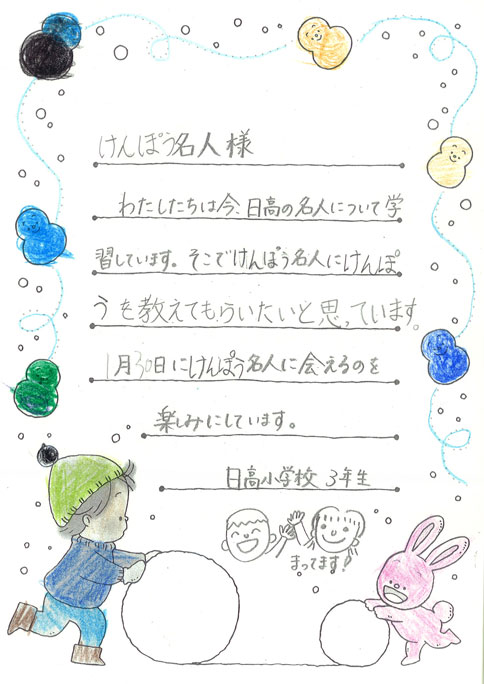 けんぽう名人様
わたしたちは今、日高の名人について学
習しています。そこでけんぽう名人にけんぽ
うを教えてもらいたいと思っています。
1月30日にけんぽう名人に会えるのを
楽しみにしています。
日高小学校 3年生
まってます!